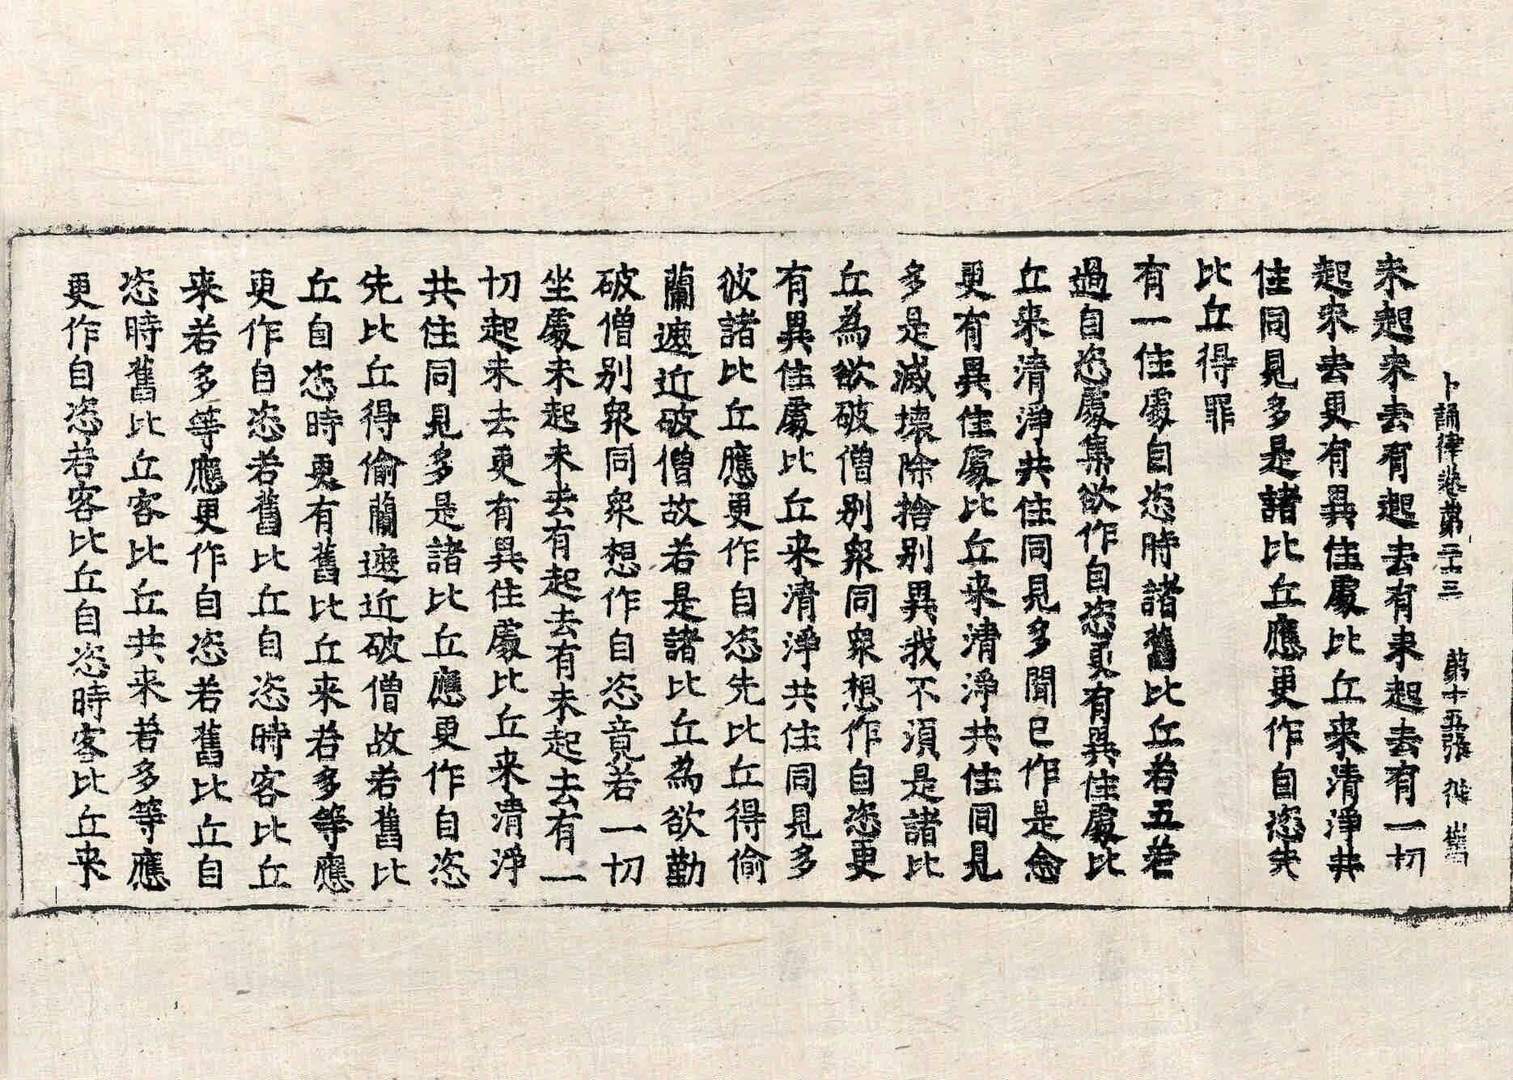 十誦律卷第二十三 第十五張 攸 舊
未起來去有起去有未起去有一切
起來去更有異住處比丘來清淨共
住同見多是諸比丘應更作自恣先
比丘得罪
有一住處自恣時諸舊比丘若五若
過自恣處集欲作自恣更有異住處比
丘來清淨共住同見多聞已作是念
更有異住處比丘來清淨共住同見
多是滅壞除捨別異我不須是諸比
丘為欲破僧別眾同眾想作自恣更
有異住處比丘來清淨共住同見多
彼諸比丘應更作自恣先比丘得偷
蘭遮近破僧故若是諸比丘為欲勤
破僧別眾同眾想作自恣竟若一切
坐處未起來去有起去有未起去有一
切起來去更有異住處比丘來清淨
共住同見多是諸比丘應更作自恣
先比丘得偷蘭遮近破僧故若舊比
丘自恣時更有舊比丘來若多等應
更作自恣若舊比丘自恣時客比丘
來若多等應更作自恣若舊比丘自
恣時舊比丘客比丘共來若多等應
更作自恣若客比丘自恣時客比丘來